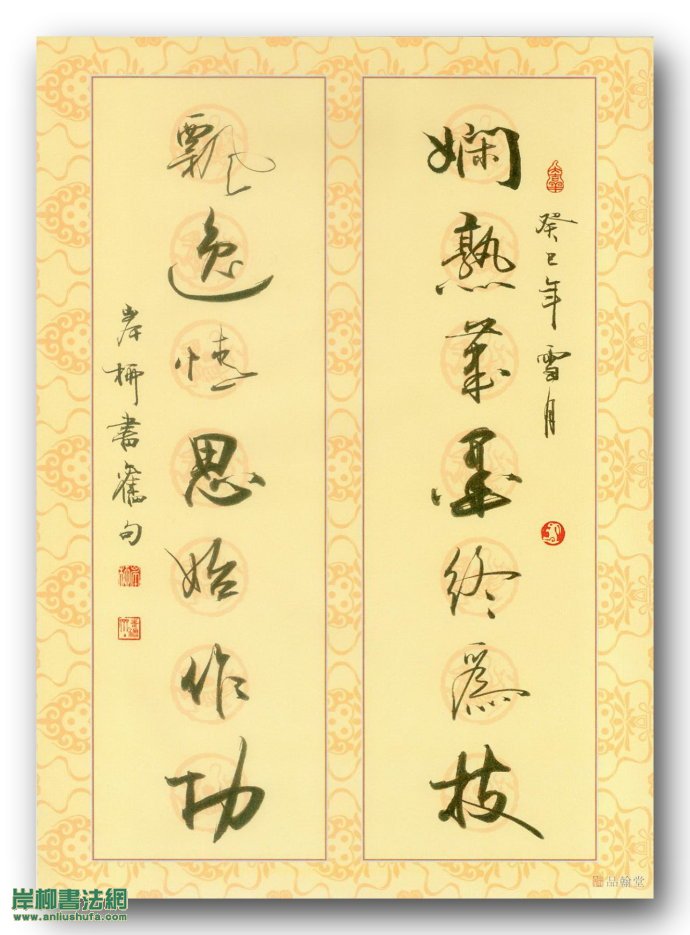 癸巳年雪月
嫻熟筆墨終爲技
飄逸情思始作功
岸柳書舊句
品翰堂
岸柳書法網
www.anliushufa.com